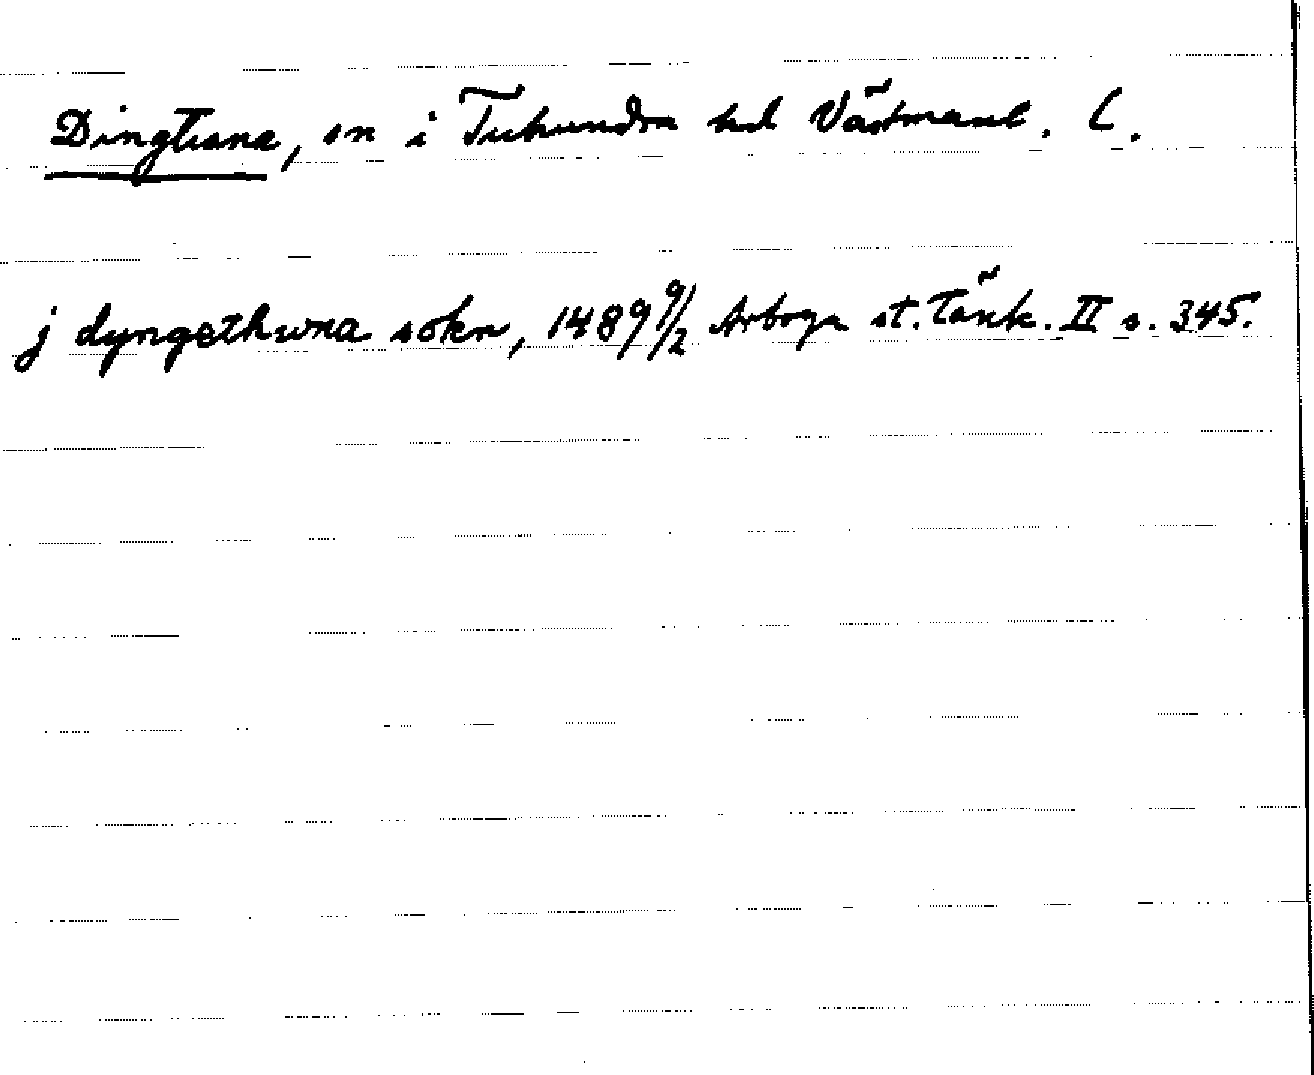 Dingtuna, sn i Tuhundra hd Västmanl. l.
j dyngethwna sokn, 1489 9/2 Arboga st. tänk. II s. 345.